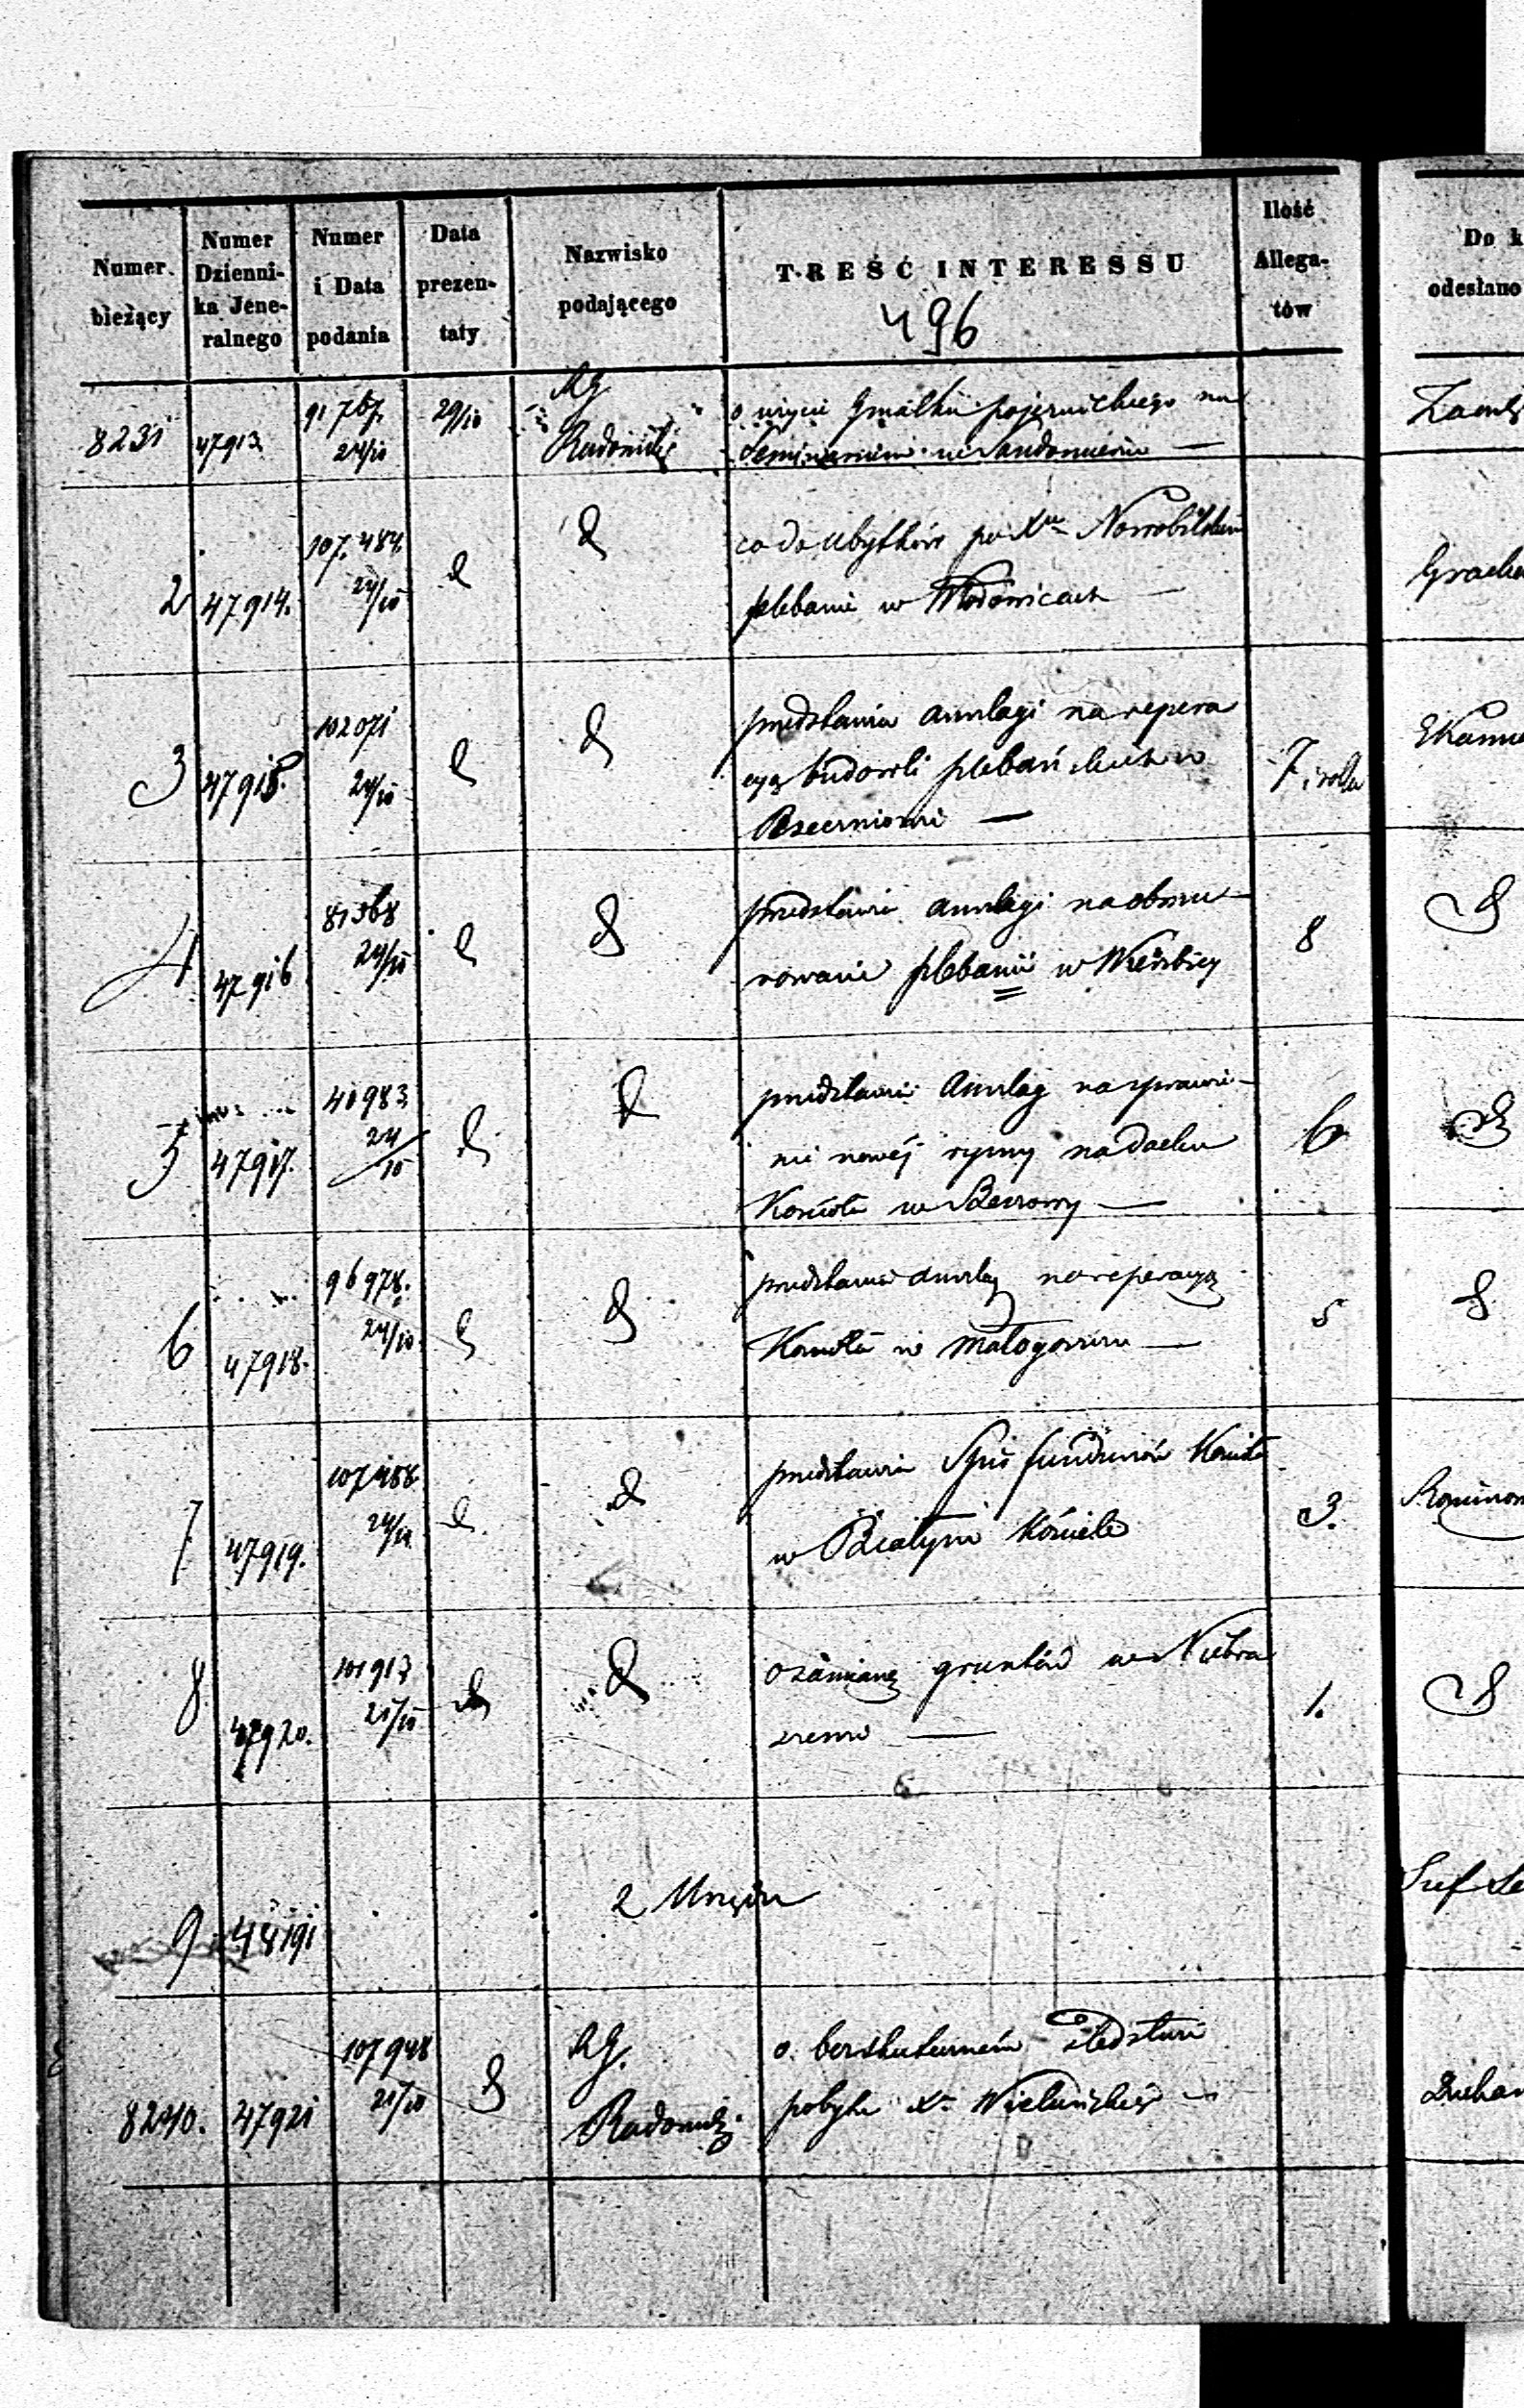 Numer bieżący
Numer Dzienni-
ka Jene-
ralnego
Numer
i Data
podania
Data
prezen-
taty
Nazwisko
podającego
TREŚĆ INTERESSU
496
Ilość
Allega-
tów
Do k
odesłano
8231 47913 91767 24/10 29/10 RG
Radomski
o użycie gmachu pojezuickiego na
Seminarium w Sandomierzu —
2 47914. 107.484. 24/10 d d
co do ubytków po Xu Nowobilskim
plebanie w Włodowicach —
3 47915. 102071 24/10 d d
przedstawia anszlagi na repera
cyą budowli plebańskich w
7
4 47916 81368 24/10 d d
przedstawia anszlagi na obmu-
rowanie plebanii w Wierzbicy
8
d
5 47917. 40983 24/10 d d
przedstawia anszlag na sprawie-
nie nowéj rynny na dachu
Kościoła w
6
d
6 47918. 96978. 24/10 d d
przedstawia anszlag na reperacyą
Kościoła w Małogoszczu —
5
d
7 47919. 107488 24/10 d d
przedstawia Spis funduszów Kościoła
w Białym Kościele
3.
8 47920. 101913 25/10 d d
o zamianę gruntów w Niebra
1.
d
9 48191
z Urzędu
Szef
8240. 47921 107948 25/10 d RG.
Radomski.
o bezskutecznem śledztwie
pobytu Xa Wieluńskiego —